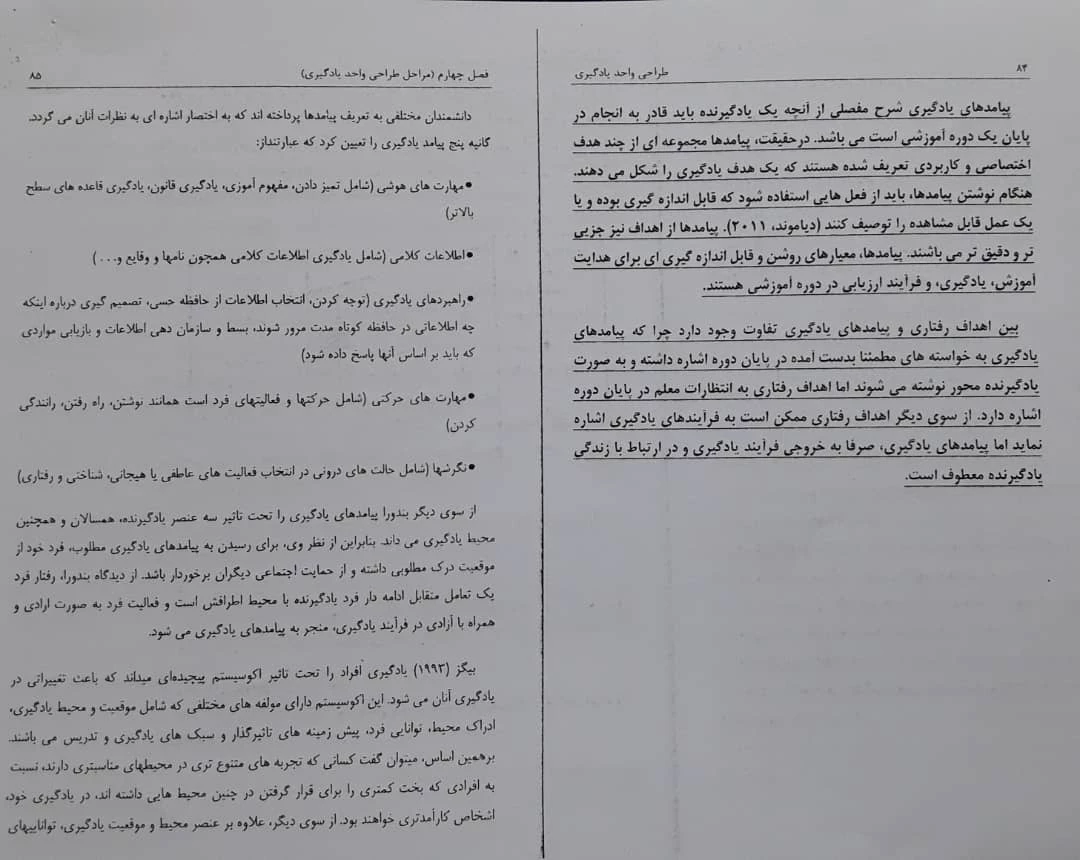 ۸۴
طراحی واحد یادگیری
پیامدهای یادگیری شرح مفصلی از آنچه یک یادگیرنده باید قادر به انجام در
پایان یک دوره آموزشی است می باشد. درحقیقت، پیامدها مجموعه ای از چند هدف
اختصاصی و کاربردی تعریف شده هستند که یک هدف یادگیری را شکل می دهند.
هنگام نوشتن پیامدها، باید از فعل هایی استفاده شود که قابل اندازه گیری بوده و یا
یک عمل قابل مشاهده را توصیف کنند (دیاموند، ۲۰۱۱). پیامدها از اهداف نیز جزیی
تر و دقیق تر می باشند. پیامدها، معیارهای روشن و قابل اندازه گیری ای برای هدایت
آموزش، یادگیری، و فرآیند ارزیابی در دوره آموزشی هستند.
بین اهداف رفتاری و پیامدهای یادگیری تفاوت وجود دارد چرا که پیامدهای
یادگیری به خواسته های مطمئنا بدست آمده در پایان دوره اشاره داشته و به صورت
یادگیرنده محور نوشته می شوند اما اهداف رفتاری به انتظارات معلم در پایان دوره
اشاره دارد. از سوی دیگر اهداف رفتاری ممکن است به فرآیندهای یادگیری اشاره
نماید اما پیامدهای یادگیری، صرفا به خروجی فرآیند یادگیری و در ارتباط با زندگی
یادگیرنده معطوف است.
فصل چهارم (مراحل طراحی واحد یادگیری)
۸۵
دانشمندان مختلفی به تعریف پیامدها پرداخته اند که به اختصار اشاره ای به نظرات آنان می گردد.
گانیه پنج پیامد یادگیری را تعیین کرد که عبارتنداز:
●مهارت های هوشی (شامل تمیز دادن، مفهوم آموزی، یادگیری قانون، یادگیری قاعده های سطح
بالاتر)
●اطلاعات کلامی (شامل یادگیری اطلاعات کلامی همچون نامها و وقایع و. . . )
●راهبردهای یادگیری (توجه کردن، انتخاب اطلاعات از حافظه حسی، تصمیم گیری درباره اینکه
چه اطلاعاتی در حافظه کوتاه مدت مرور شوند، بسط و سازمان دهی اطلاعات و بازیابی مواردی
که باید بر اساس آنها پاسخ داده شود)
●مهارت های حرکتی (شامل حرکتها و فعالیتهای فرد است همانند نوشتن، راه رفتن، رانندگی
کردن)
●نگرشها (شامل حالت های درونی در انتخاب فعالیت های عاطفی یا هیجانی، شناختی و رفتاری)
از سوی دیگر بندورا پیامدهای یادگیری را تحت تاثیر سه عنصر یادگیرنده، همسالان و همچنین
محیط یادگیری می داند. بنابراین از نظر وی، برای رسیدن به پیامدهای یادگیری مطلوب، فرد خود از
موقعیت درک مطلوبی داشته و از حمایت اجتماعی دیگران برخوردار باشد. از دیدگاه بندورا، رفتار فرد
یک تعامل متقابل ادامه دار فرد یادگیرنده با محیط اطرافش است و فعالیت فرد به صورت ارادی و
همراه با آزادی در فرآیند یادگیری، منجر به پیامدهای یادگیری می شود.
بیگز (۱۹۹۳) یادگیری افراد را تحت تاثیر اکوسیستم پیچیده‌ای میداند که باعث تغییراتی در
یادگیری آنان می شود. این اکوسیستم دارای مولفه های مختلفی که شامل موقعیت و محیط یادگیری،
ادراک محیط، توانایی فرد، پیش زمینه های تاثیرگذار و سبک های یادگیری و تدریس می باشند.
برهمین اساس، میتوان گفت کسانی که تجربه های متنوع تری در محیطهای مناسبتری دارند، نسبت
به افرادی که بخت کمتری را برای قرار گرفتن در چنین محیط هایی داشته اند، در یادگیری خود،
اشخاص کارآمدتری خواهند بود. از سوی دیگر، علاوه بر عنصر محیط و موقعیت یادگیری، تواناییهای